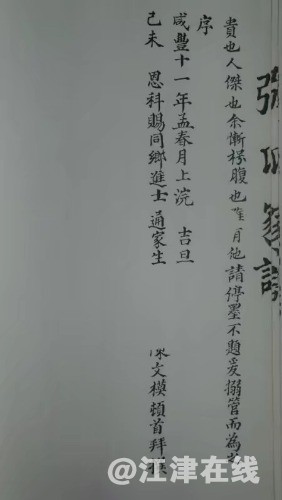 張氏族譜
貴也人傑也余慚樗腹也唯自他請停墨不題爰搦管而為
序
咸豐十一年孟春月上浣 吉旦
己未 恩科賜同鄉進士 通家生
文模頓首拜
@江津在线